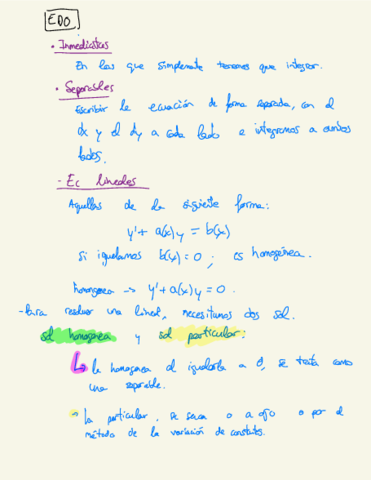 EDO
• Inmediatas
En las que simplemente tenemos que integrar.
• Separables
Escribir la ecuación de forma separada, con el
dx y el dy a cada lado e integramos a ambos
lados.
- Ec lineales
Aquellas de la siguiente forma:
y' + a(x)y = b(x)
si igualamos b(x) = 0; es homogénea.
homogenea -> y' + a(x)y = 0.
- Para resolver una lineal, necesitamos dos sol.
sol homogenea y sol particular:
la homogenea al igualarla a 0, se trata como
una separable.
-> la particular, se saca o a ojo o por el
método de la variación de constates.